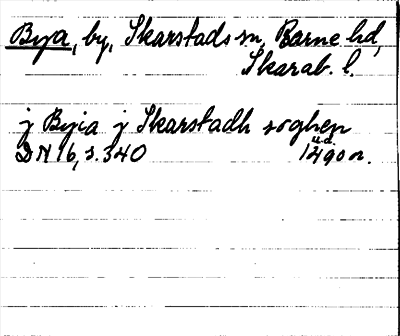 Bya, by, Skarstads sn, Barne hd,
Skarab. l.
j Byia j Skarstadh soghen
DN 16, s. 340 u.d. 1490 n.